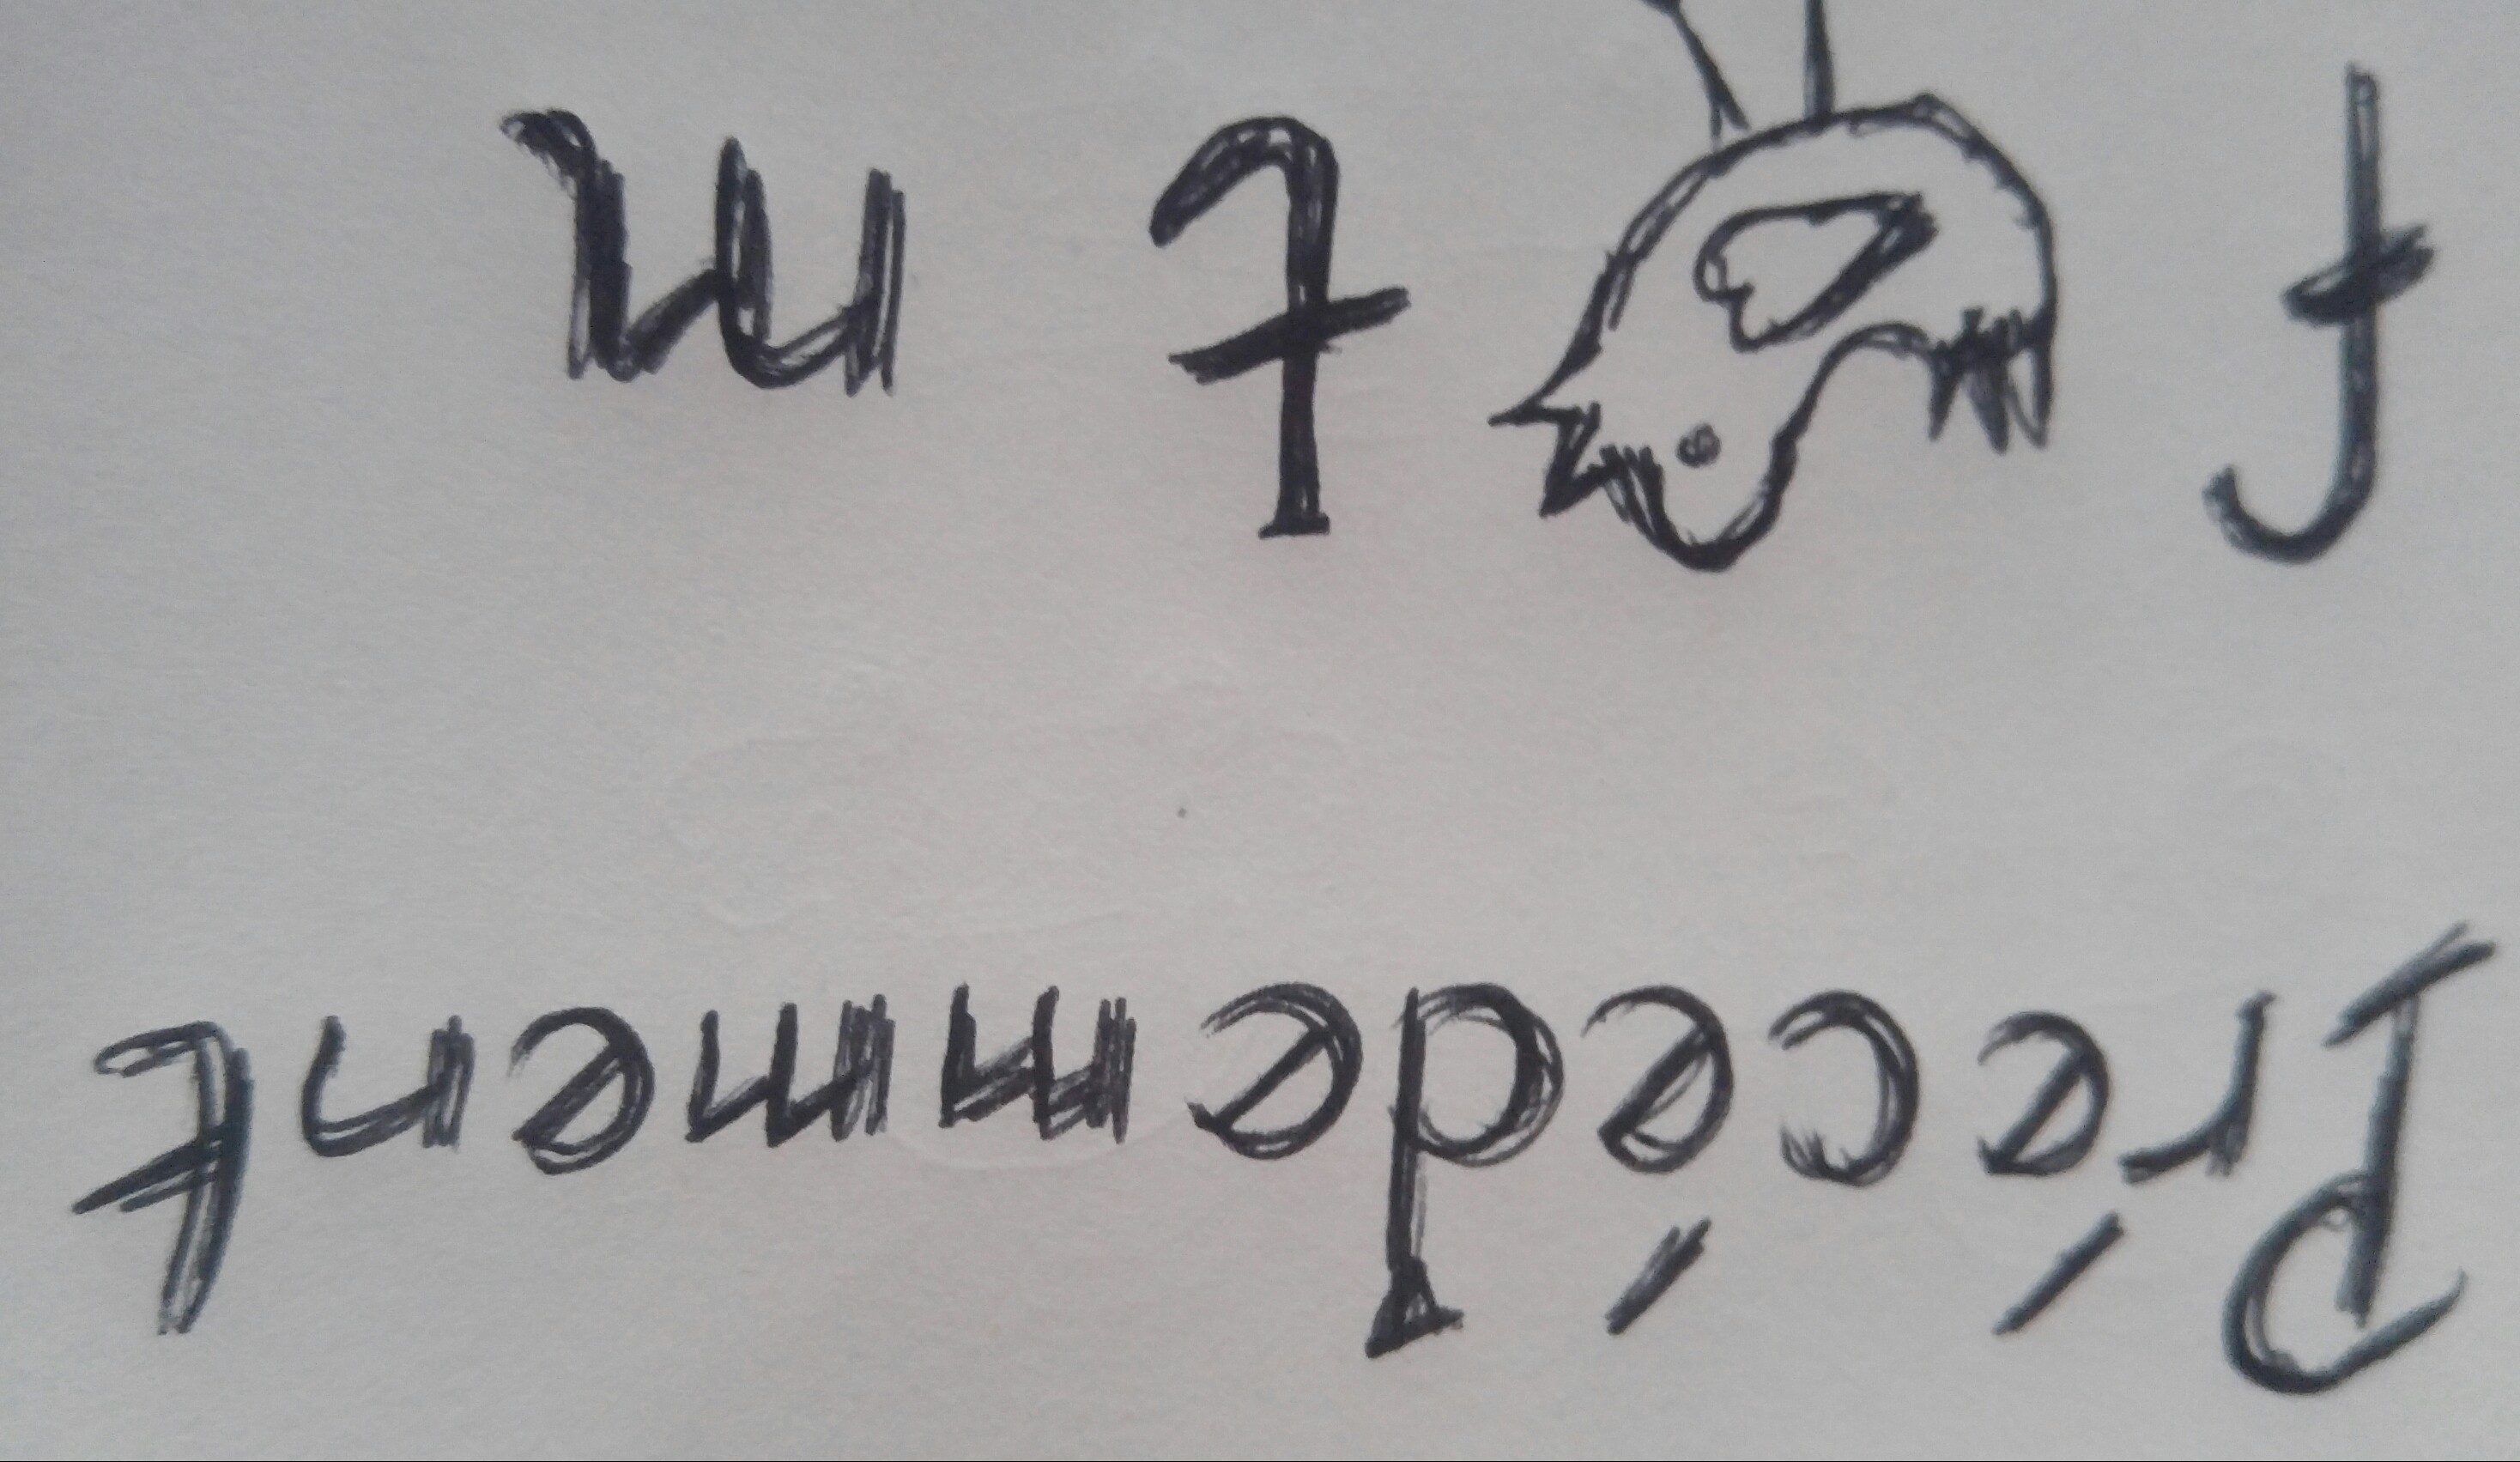 Précédemment
f t m